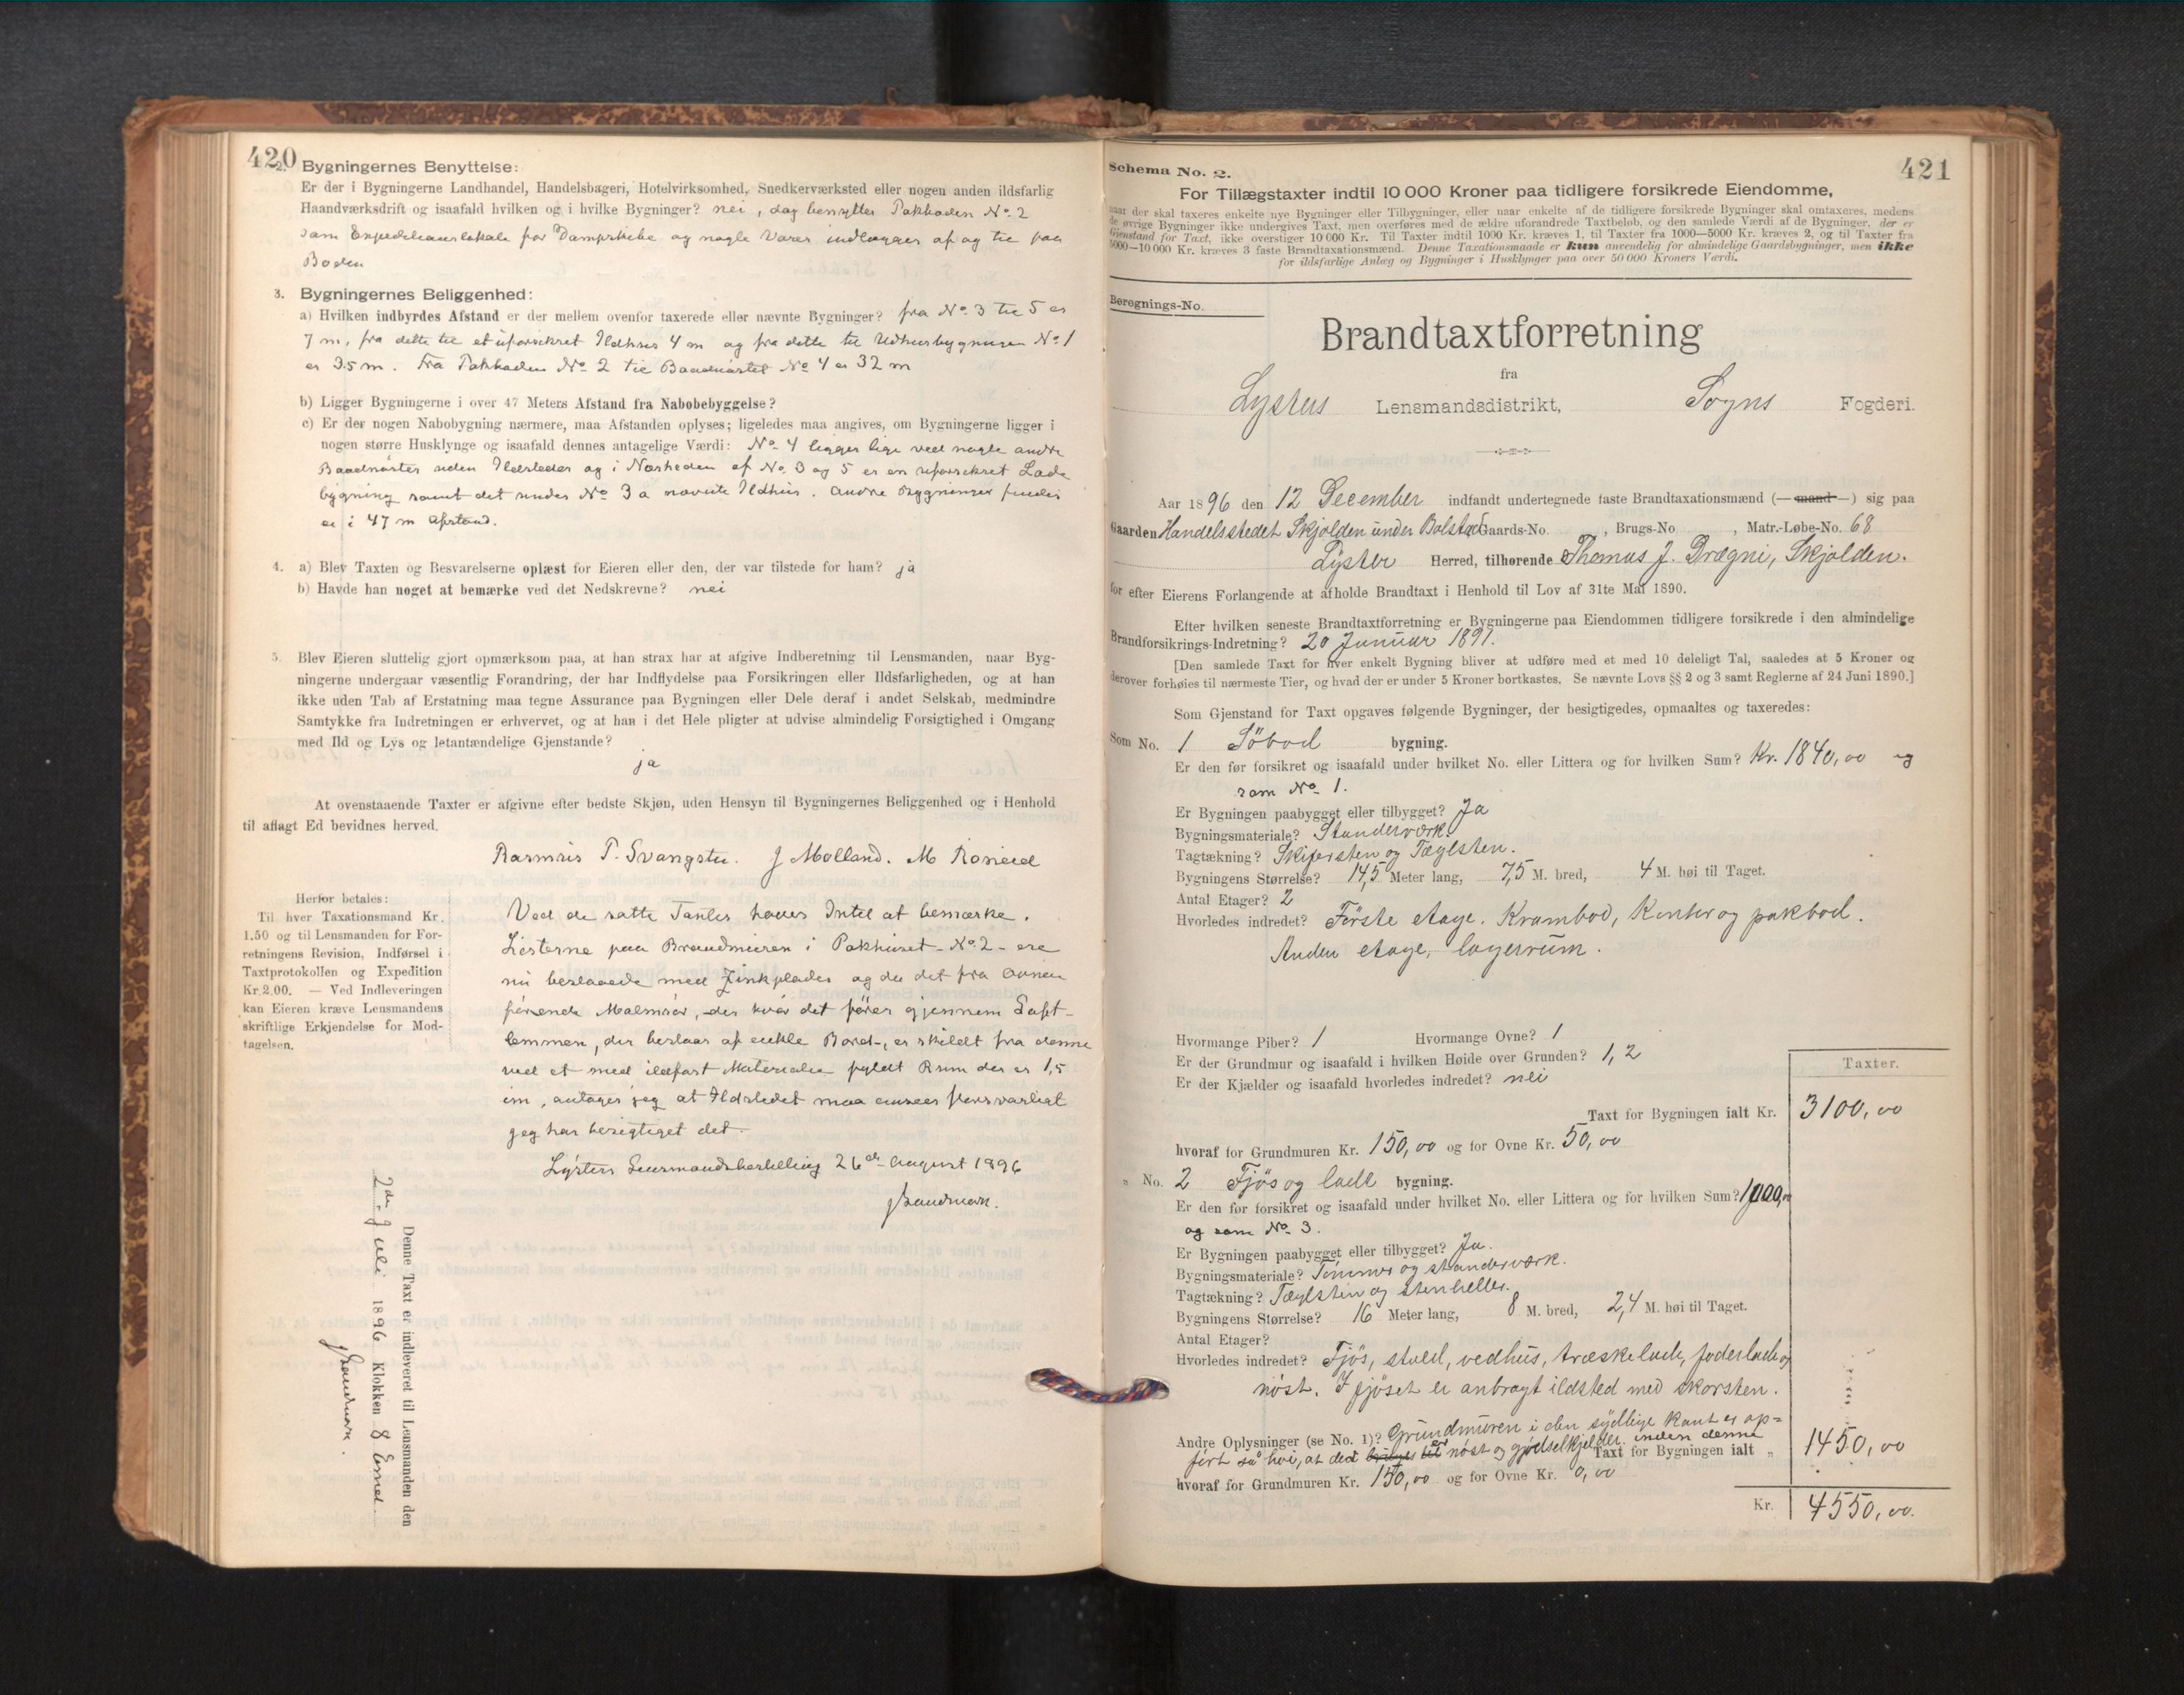 420
2. Bygningernes Benyttelse:
Er der i Bygningerne Landhandel, Handelsbageri, Hotelvirksomhed, Snedkerværksted eller nogen anden ildsfarlig
Haandværksdrift og isaafald hvilken og i hvilke Bygninger? nei, dog benyttes Pakboden No 2
som Expeditionslokale for Dampskibe og nogle Varer indlægges af og til paa
Boden
3. Bygningernes Beliggenhed:
a) Hvilken indbyrdes Afstand er der mellem ovenfor taxerede eller nævnte Bygninger? fra No 3 til 5 er
7 m, fra dette til et uforsikret Ildhus 4 m og fra dette til Udhusbygningen No 1
er 35 m. Fra Pakboden No 2 til Baadnöstet No 4 er 32 m
b) Ligger Bygningerne i over 47 Meters Afstand fra Nabobebyggelse?
c) Er der nogen Nabobygning nærmere, maa Afstanden oplyses; ligeledes maa angives, om Bygningerne ligger i
nogen større Husklynge og isaafald dennes antagelige Værdi: No 4 ligger lige ved nogle andre
Baadnöster uden Ildsteder og i Nærheden af No 3 og 5 er en uforsikret Lade
bygning samt det under No 3 a nævnte Ildhus. Andre Bygninger findes
ei i 47 m Afstand.
4. a) Blev Taxten og Besvarelserne oplæst for Eieren eller den, der var tilstede for ham? ja
b) Havde han noget at bemærke ved det Nedskrevne? nei
5. Blev Eieren sluttelig gjort opmærksom paa, at han strax har at afgive Indberetning til Lensmanden, naar Byg-
ningerne undergaar væsentlig Forandring, der har Indflydelse paa Forsikringen eller Ildsfarligheden, og at han
ikke uden Tab af Erstatning maa tegne Assurance paa Bygningen eller Dele deraf i andet Selskab, medmindre
Samtykke fra Indretningen er erhvervet, og at han i det Hele pligter at udvise almindelig Forsigtighed i Omgang
med Ild og Lys og letantændelige Gjenstande?
ja
At ovenstaaende Taxter er afgivne efter bedste Skjøn, uden Hensyn til Bygningernes Beliggenhed og i Henhold
til aflagt Ed bevidnes herved.
Rasmus P. J Molland. M
Herfor betales:
Til hver Taxationsmand Kr.
1.50 og til Lensmanden for For-
retningens Revision, Indførsel i
Taxtprotokollen og Expedition
Kr. 2.00. — Ved Indleveringen
kan Eieren kræve Lensmandens
skriftlige Erkjendelse for Mod-
tagelsen.
Ved de satte Taxter haves Intet at bemærke.
Listerne paa Brandmuren i Pakhuset - No 2 - ere
nu beslaaede med Zinkplader og da det fra Ovnen
förende Malmrör, der hvor det förer gjennem Loft-
lemmen, der bestaar af enkle Bord, er skildt fra denne
ved et med ildfast Materiale fyldt Rum der er 1,5
cm, antager jeg at Ildstedet maa ansees forsvarligt
jeg har besigtiget det.
Lysters Lensmandsbestilling 26de August 1896
Denne Taxt er indleveret til Lensmanden den
2den Juli 1896 Klokken 8 Emd.
421
Schema No. 2.
For Tillægstaxter indtil 10 000 Kroner paa tidligere forsikrede Eiendomme,
naar der skal taxeres enkelte nye Bygninger eller Tilbygninger, eller naar enkelte af de tidligere forsikrede Bygninger skal omtaxeres, medens
de øvrige Bygninger ikke undergives Taxt, men overføres med de ældre uforandrede Taxtbeløb, og den samlede Værdi af de Bygninger, der er
Gjenstand for Taxt, ikke overstiger 10 000 Kr. Til Taxter indtil 1000 Kr. kræves 1, til Taxter fra 1000—5000 Kr. kræves 2, og til Taxter fra
5000—10 000 Kr. kræves 3 faste Brandtaxationsmænd. Denne Taxationsmaade er kun anvendelig for almindelige Gaardsbygninger, men ikke
for ildsfarlige Anlæg og Bygninger i Husklynger paa over 50 000 Kroners Værdi.
Beregnings-No.
Brandtaxtforretning
fra
Lysters Lensmandsdistrikt, Sogns Fogderi.
Aar 1896 den 12 December indfandt undertegnede faste Brandtaxationsmænd (—mand—) sig paa
Gaarden Handelsstedet Skjolden under Bolstad Gaards-No , Brugs-No , Matr.-Løbe-No. 68
Lyster Herred, tilhørende Thomas J. Drægni, Skjolden.
for efter Eierens Forlangende at afholde Brandtaxt i Henhold til Lov af 31te Mai 1890.
Efter hvilken seneste Brandtaxtforretning er Bygningerne paa Eiendommen tidligere forsikrede i den almindelige
Brandforsikrings-Indretning? 20 Januar 1891.
[Den samlede Taxt for hver enkelt Bygning bliver at udføre med et med 10 deleligt Tal, saaledes at 5 Kroner og
derover forhøies til nærmeste Tier, og hvad der er under 5 Kroner bortkastes. Se nævnte Lovs §§ 2 og 3 samt Reglerne af 24 Juni 1890.]
Som Gjenstand for Taxt opgaves følgende Bygninger, der besigtigedes, opmaaltes og taxeredes:
Som No. 1 Söbod bygning.
Er den før forsikret og isaafald under hvilket No. eller Littera og for hvilken Sum? Kr. 1840,00 og
som No 1.
Er Bygningen paabygget eller tilbygget? Ja
Bygningsmateriale? Standerværk.
Tagtækning? Skifersten og Tæglsten.
Bygningens Størrelse? 14,5 Meter lang, 7,5 M. bred, 4 M. høi til Taget.
Antal Etager? 2
Hvorledes indredet? Förste etage. Krambod, Kontor og pakbod.
Anden etage, lagerrum.
Hvormange Piber? 1 Hvormange Ovne? 1
Er der Grundmur og isaafald i hvilken Høide over Grunden? 1,2
Er der Kjælder og isaafald hvorledes indredet? nei
Taxter.
Taxt for Bygningen ialt Kr. 3100,00
hvoraf for Grundmuren Kr. 150,00 og for Ovne Kr. 50,00
" No. 2 Fjös og lade bygning.
Er den før forsikret og isaafald under hvilket No. eller Littera og for hvilken Sum? 1000,00
og som No 3.
Er Bygningen paabygget eller tilbygget? Ja.
Bygningsmateriale? Tömmer og standerværk.
Tagtækning? Tæglsten og stenheller.
Bygningens Størrelse? 16 Meter lang, 8 M. bred, 2,4 M. høi til Taget.
Antal Etager?
Hvorledes indredet? Fjös, stald, vedhus, træskelade, foderlade og
nöst. I fjöset er anbragt ildsted med skorsten.
Andre Oplysninger (se No. 1)? Grundmuren i den sydlige kant er op=
fört så höi, at der er nöst og gjödselkjelder inden denne
Taxt for Bygningen ialt " 1450,00
hvoraf for Grundmuren Kr. 150,00 og for Ovne Kr. 0,00
Kr. 4550,00.